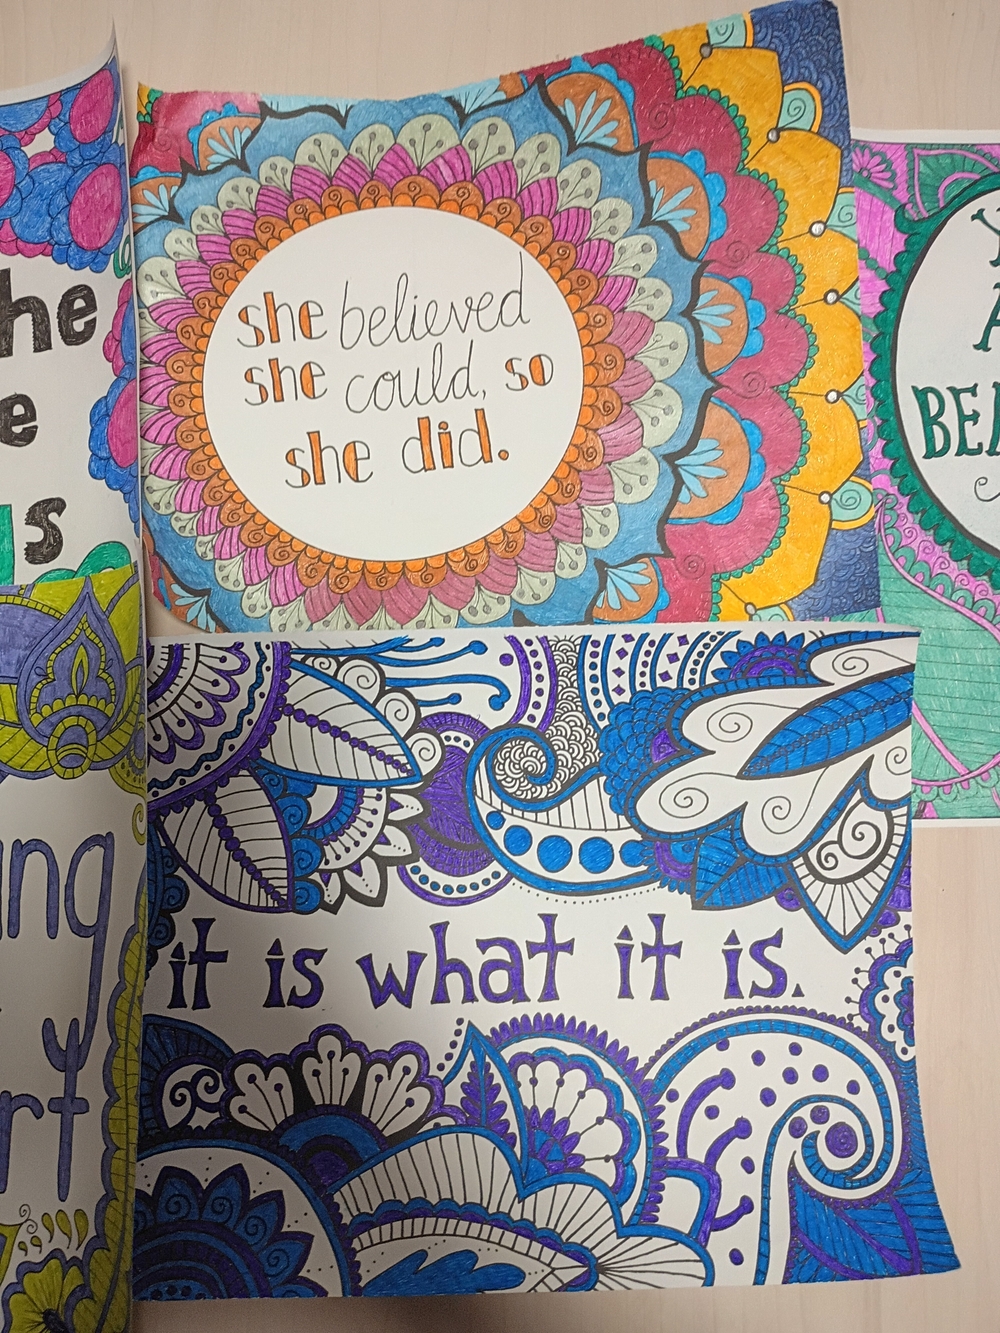 she believed
she could, so
she did.
it is what it is.
he
e
s
Y
A
BEA
ng
y
rt